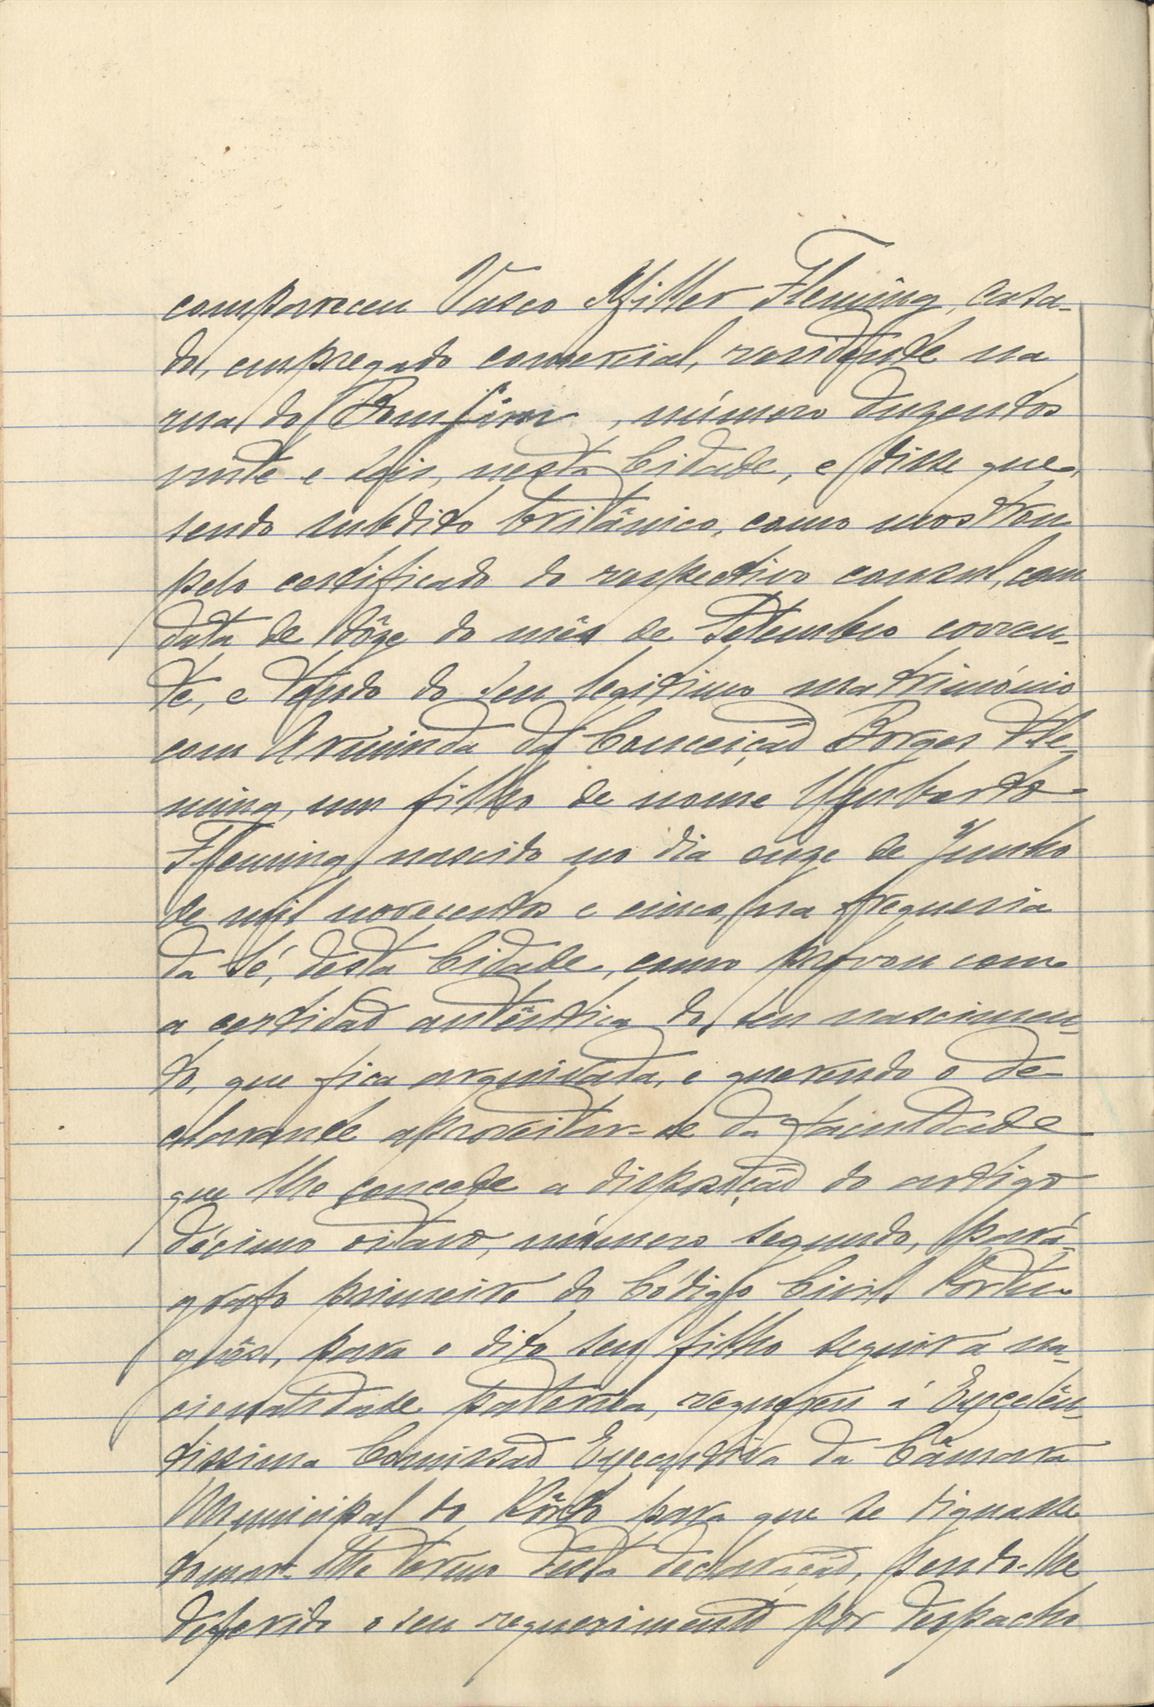 compareceu Vasco Miller Fleming, casa-
do, empregado comercial, residente na
rua do Bomfim, número duzentos
vinte e seis, nesta Cidade, e disse que,
sendo subdito britânico, como mostrou
pelo certificado do respectivo consul, com
data de dôze do mês de Setembro corren-
te, e tendo do seu legitimo matrimónio
com Arminda da Conceição Borges Fle-
ming, um filho de nome Humberto
Fleming, nascido no dia onze de Junho
de mil novecentos e cinco, na freguesia
da Sé, desta Cidade, como provou com
a certidão autêntica do seu nascimen-
to, que fica arquivada, e querendo o de-
clarante aproveitar-se da faculdade
que lhe concede a disposição do artigo
décimo oitavo, número segundo, pará-
grafo primeiro do Código Civil Portu-
guês, para o dito seu filho seguir a na-
cionalidade paterna, requereu á Excelên-
tissima Comissão Executiva da Câmara
Municipal do Pôrto para que se dignasse
tomar-lhe termo desta declaração, sendo-lhe
deferido o seu requerimento por despacho